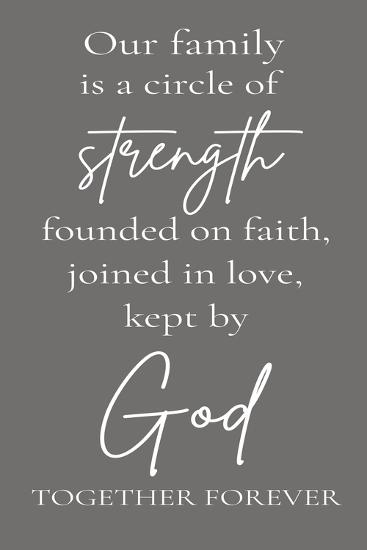 Our family
is a circle of
strength
founded on faith,
joined in love,
kept by
God
TOGETHER FOREVER